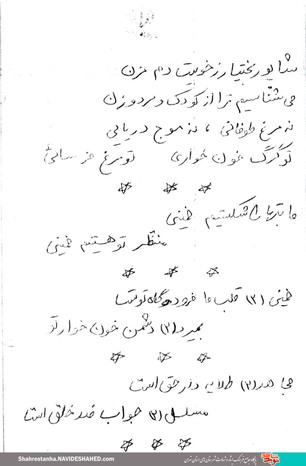 شاپور بختیار ز خوبیت دم مزن
می شناسیم ترا از کودک و مرد و زن
نه مرغ طوفانی ، نه موج دریایی
تو گرگ خون خواری تو مرغ
ما بتها را شکستیم خمینی
منتظر تو هستیم خمینی
خمینی (۲) قلب ما فرودگاه توست
بمیرد (۲) دشمن خون خوار تو
مجاهد (۲) طلایه دار حق است
مسلسل (۲) جواب ضد خلق است
Shahrestanha.NAVIDESHAHED.com